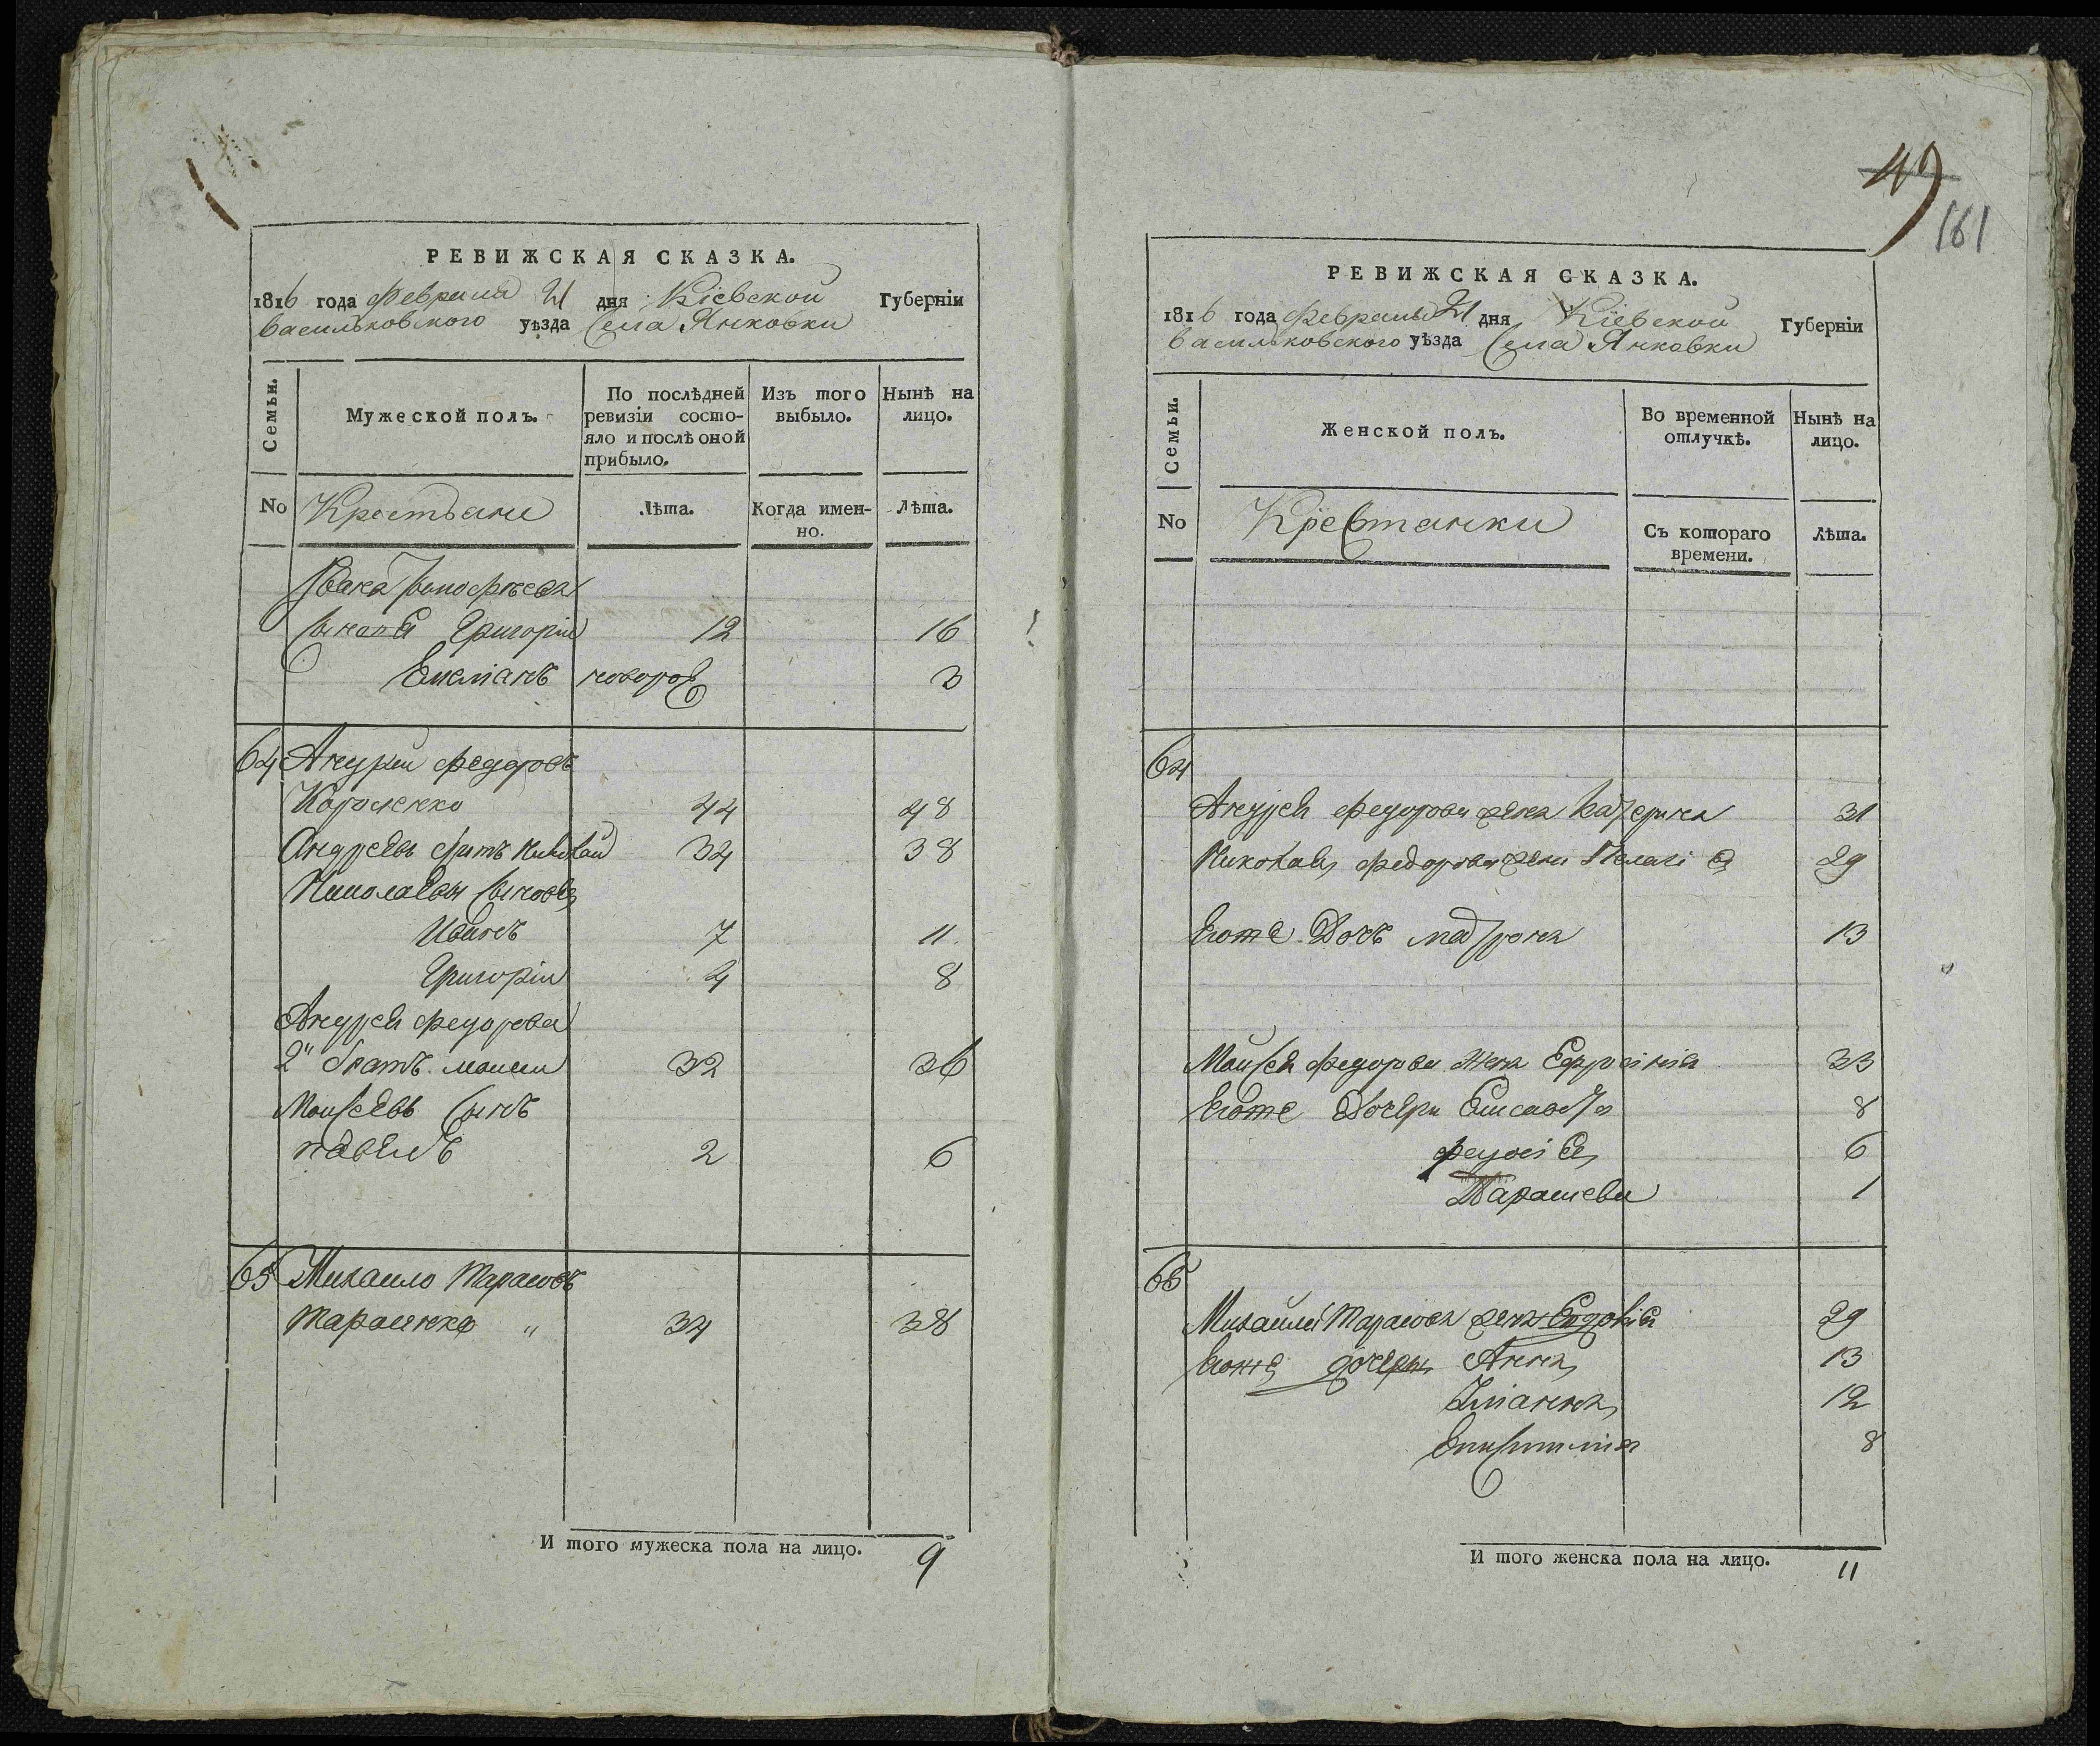 РЕВИЖСКАЯ СКАЗКА.
1816 года Февраля 21 дня Кіевской Губерніи
Васильковского уѣзда Села Янковки
Семьи.
Мужеской полъ.
По послѣдней ревизіи состо-
яло и послѣ оной
прибыло.
Изъ того
выбыло.
Нынѣ на
лицо.
No
Крестьяне
Лѣта.
Когда имен-
но.
Лѣта.
Ивана
сыновя Григорій 12 16
Емеліанъ новорож 3
64 Андрей Федоровъ
Короленко 44 48
Андреевъ братъ Николай 34 38
Николаевы сыновя
Иванъ 7 11
Григорій 4 8
Андрея Федорова
2" братъ моисей 32 36
Моисеевъ сынъ
павелъ 2 6
65 Михайло Тарасовъ
Тарасенко " 34 38
И того мужеска пола на лицо. 9
49
161
РЕВИЖСКАЯ СКАЗКА.
1816 года Февраля 21 дня Кіевской Губерніи
Васильковского уѣзда Села Янковки
Семьи.
Женской полъ.
Во временной
отлучкѣ.
Нынѣ на
лицо.
No
Крестянки
Съ котораго
времени.
Лѣта.
64
Андрея Федорова жена Катерина 31
Николая Федорова жена Пелагія 29
Егоже Дочъ матрона 13
Моисея Федорова жена Ефросинія 33
Егоже Дочери Елисавета 8
феодосія 6
Парасцева 1
65
Михайла Тарасова жена Евдокія 29
Егоже дочери Анна 13
Уліанна 12
Епистимія 8
И того женска пола на лицо. 11